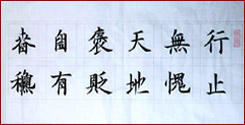 行止
無愧
天地
褒貶
自有
春穐